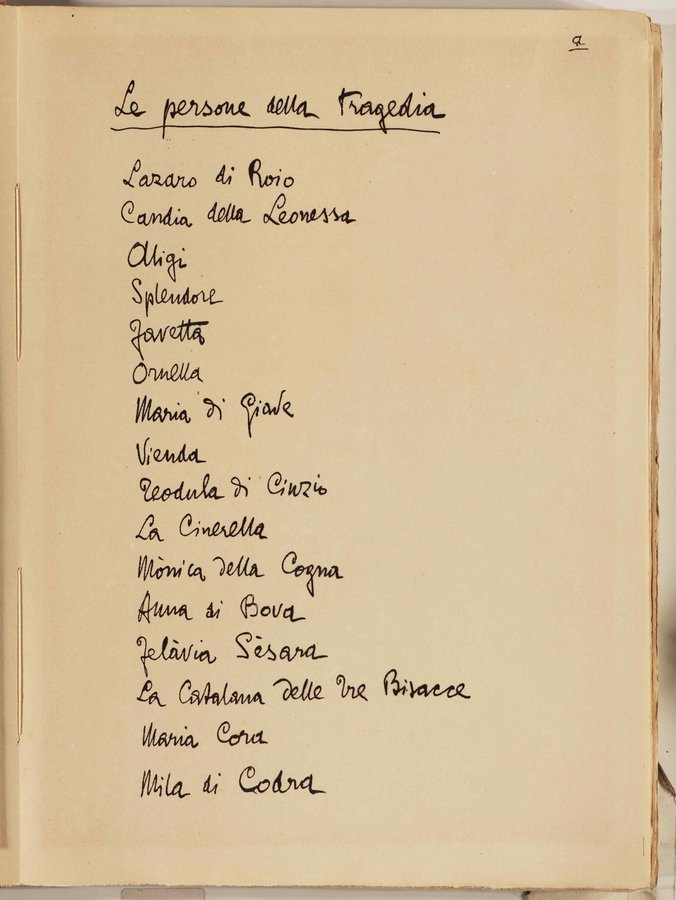 a
Le persone della tragedia
Lazaro di Roio
Candia della Leonessa
Aligi
Splendore
Favetta
Ornella
Maria di Giave
Vienda
Teodula di Cinzio
La Cinerella
Mònica della Cogna
Anna di Bova
Felàvia Sèsara
La Catalana delle Tre Bisacce
Maria Cora
Mila di Codra